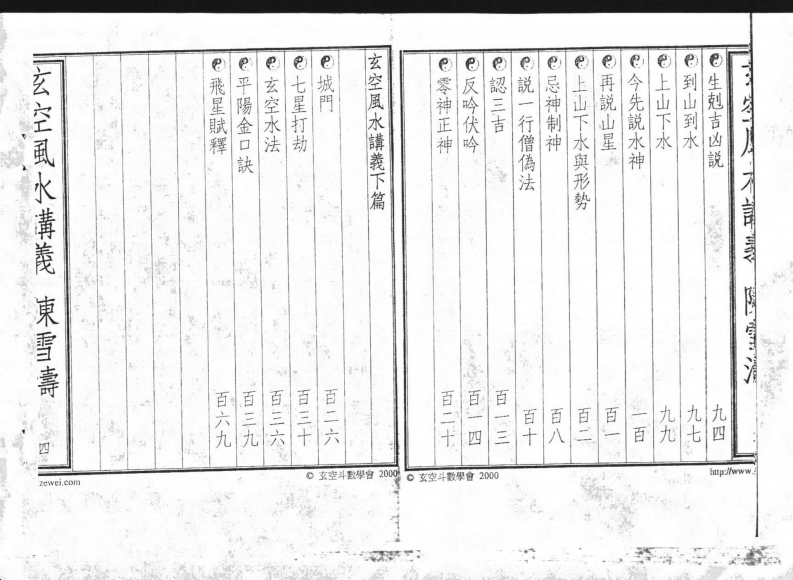 生剋吉凶說 九四
到山到水 九七
上山下水 九九
今先說水神 一百
再說山星 百一
上山下水與形勢 百二
忌神制神 百八
說一行僧偽法 百十
認三吉 百一三
反吟伏吟 百一四
零神正神 百二十
© 玄空斗數學會 2000
http://www.
玄空風水講義下篇
城門 百二六
七星打劫 百三十
玄空水法 百三六
平陽金口訣 百三九
飛星賦釋 百六九
玄空風水講義 陳雪濤
四
© 玄空斗數學會 2000
zewei.com